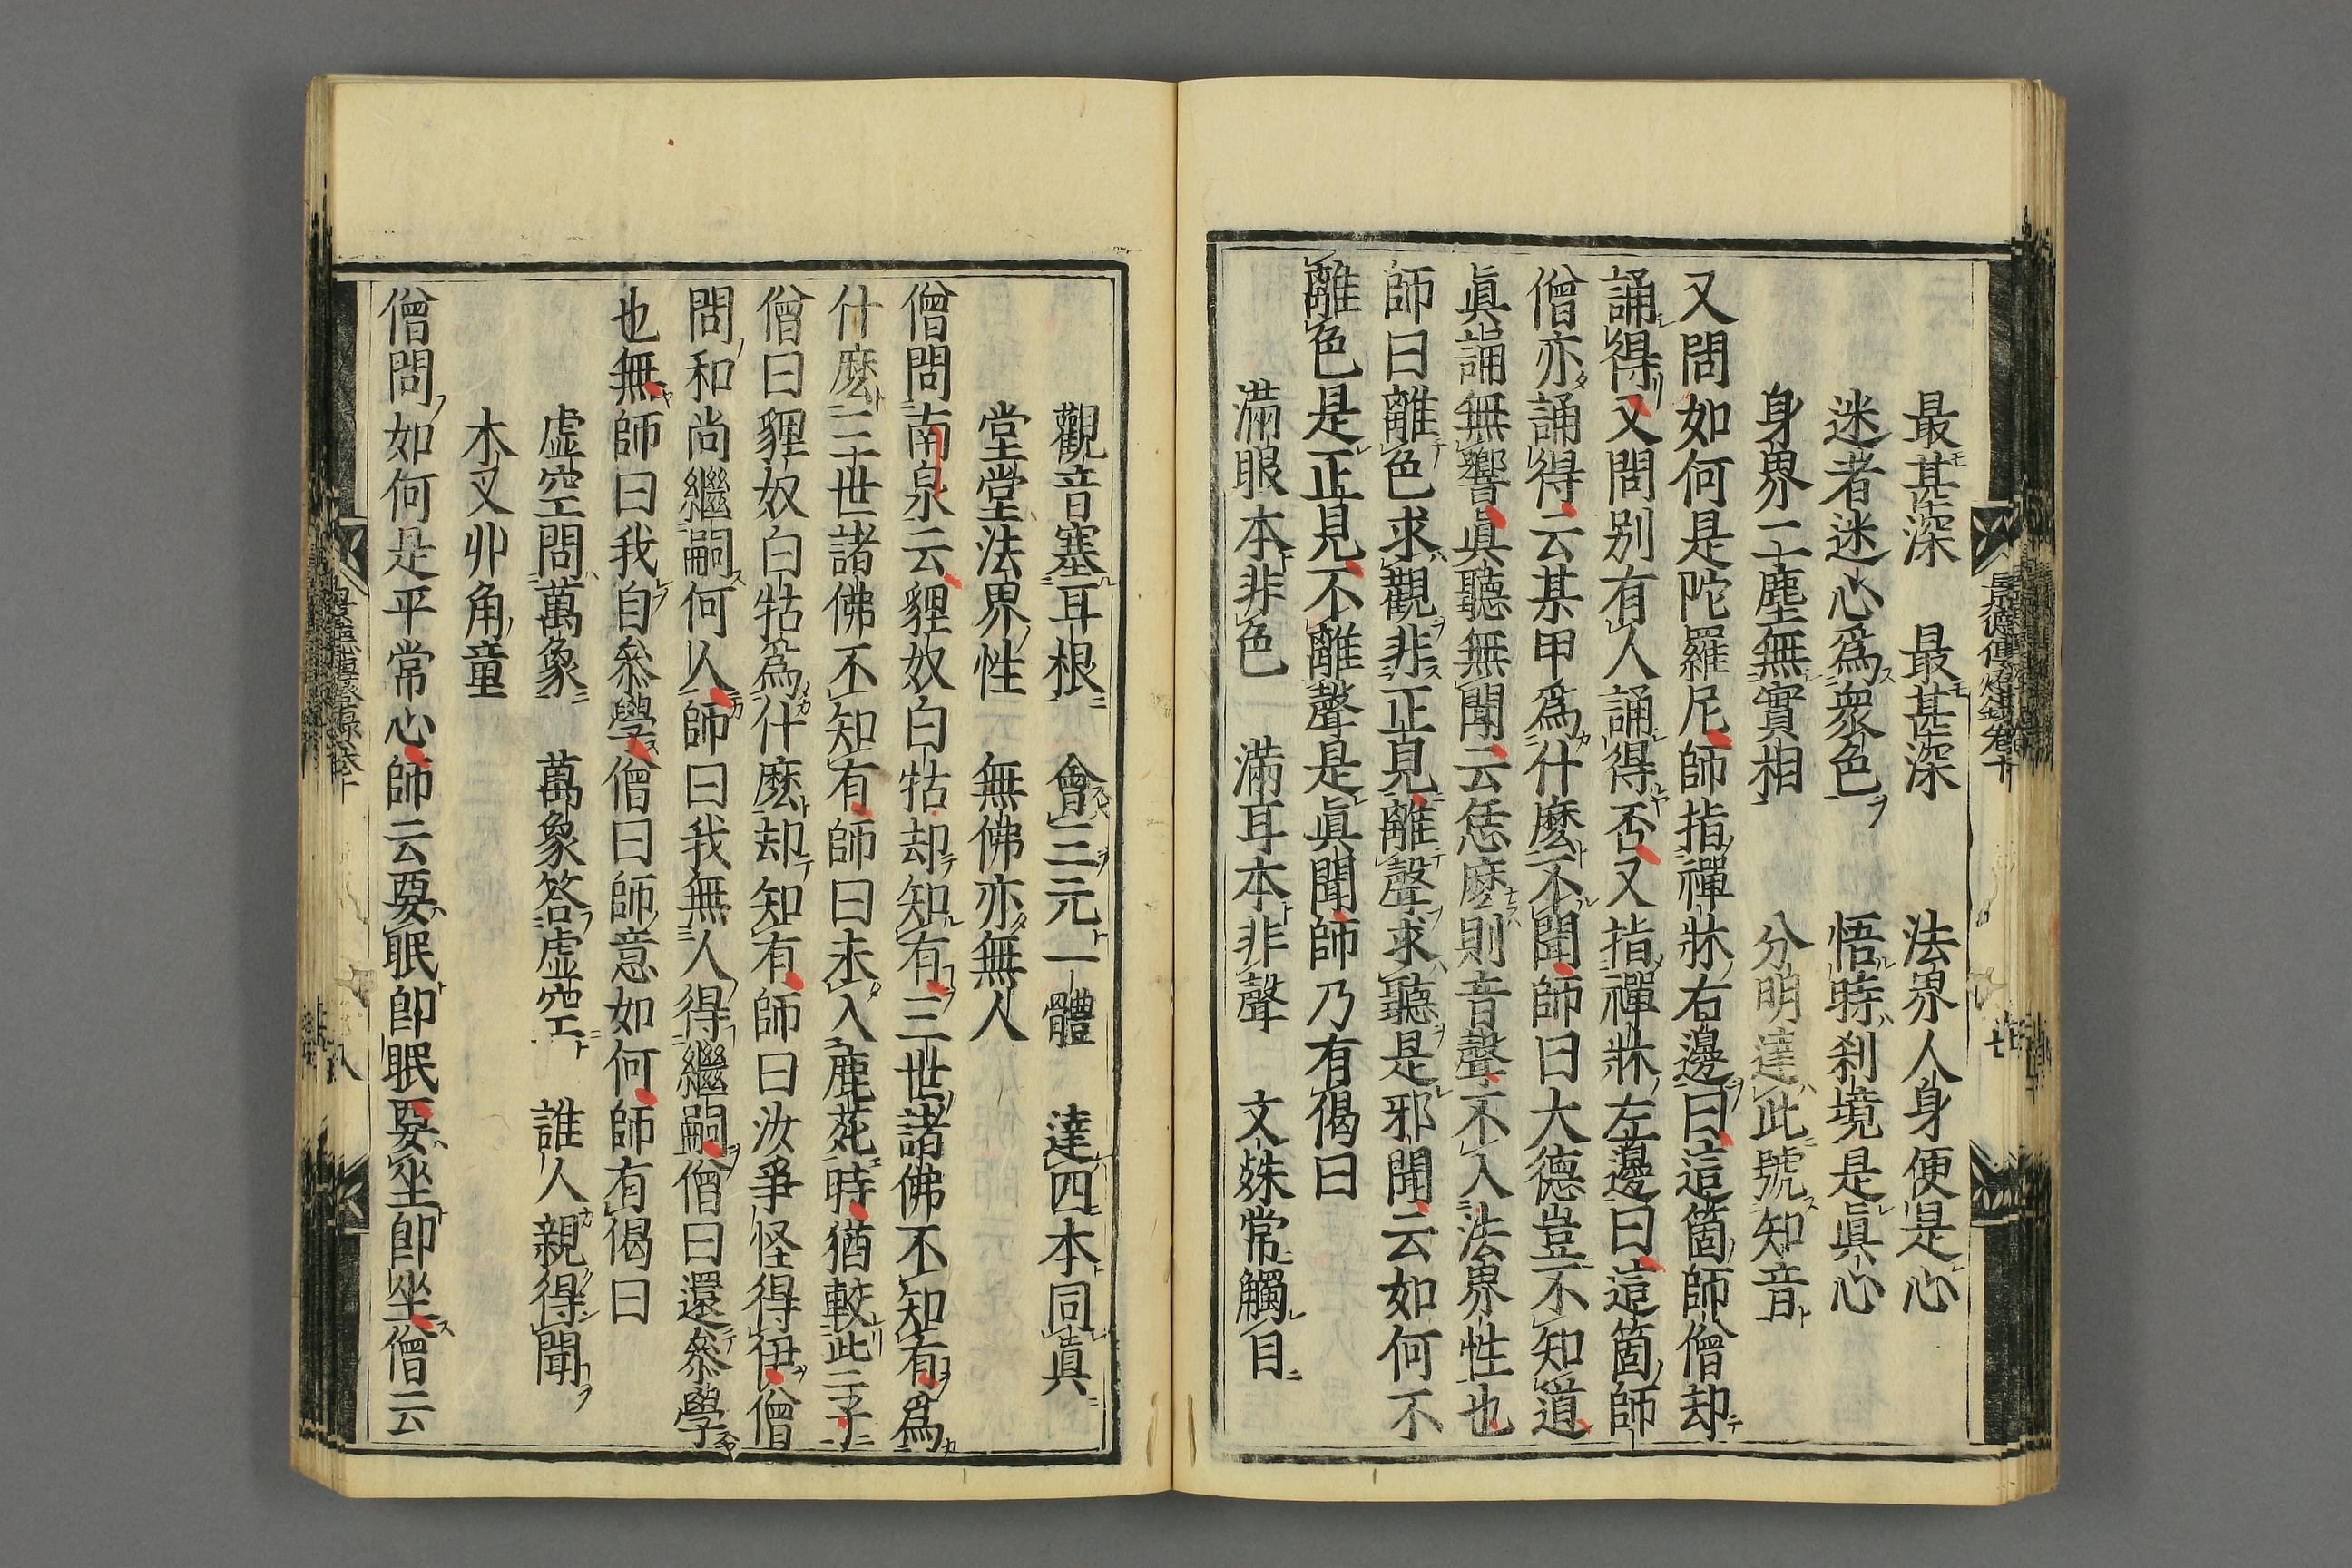 最甚深　最甚深　法界人身便是心
迷者迷心爲衆色　悟時刹境是眞心
身界二塵無實相　分明達此號知音
又問如何是陀羅尼師指禪牀右邊曰這箇師僧却
誦得又問別有人誦得否又指禪牀左邊曰這箇師
僧亦誦得云某甲爲什麽不聞師曰大德豈不知道
眞誦無響眞聽無聞云恁麽則音聲不入法界性也
師曰離色求觀非正見離聲求聽是邪聞云如何不
離色是正見不離聲是眞聞師乃有偈曰
滿眼本非色　滿耳本非聲　文殊常觸目
觀音塞耳根　會三元一體　達四本同眞
堂堂法界性　無佛亦無人
僧問南泉云貍奴白牯却知有三世諸佛不知有爲
什麽三世諸佛不知有師曰未入鹿苑時猶較些子
僧曰貍奴白牯爲什麽却知有師曰汝爭怪得伊僧
問和尚繼嗣何人師曰我無人得繼嗣僧曰還叅學
也無師曰我自叅學僧曰師意如何師有偈曰
虛空問萬象　萬象答虛空　誰人親得聞
木叉丱角童
僧問如何是平常心師云要眠卽眠要坐卽坐僧云
景德傳燈錄卷十
七
景德傳燈錄卷十
八